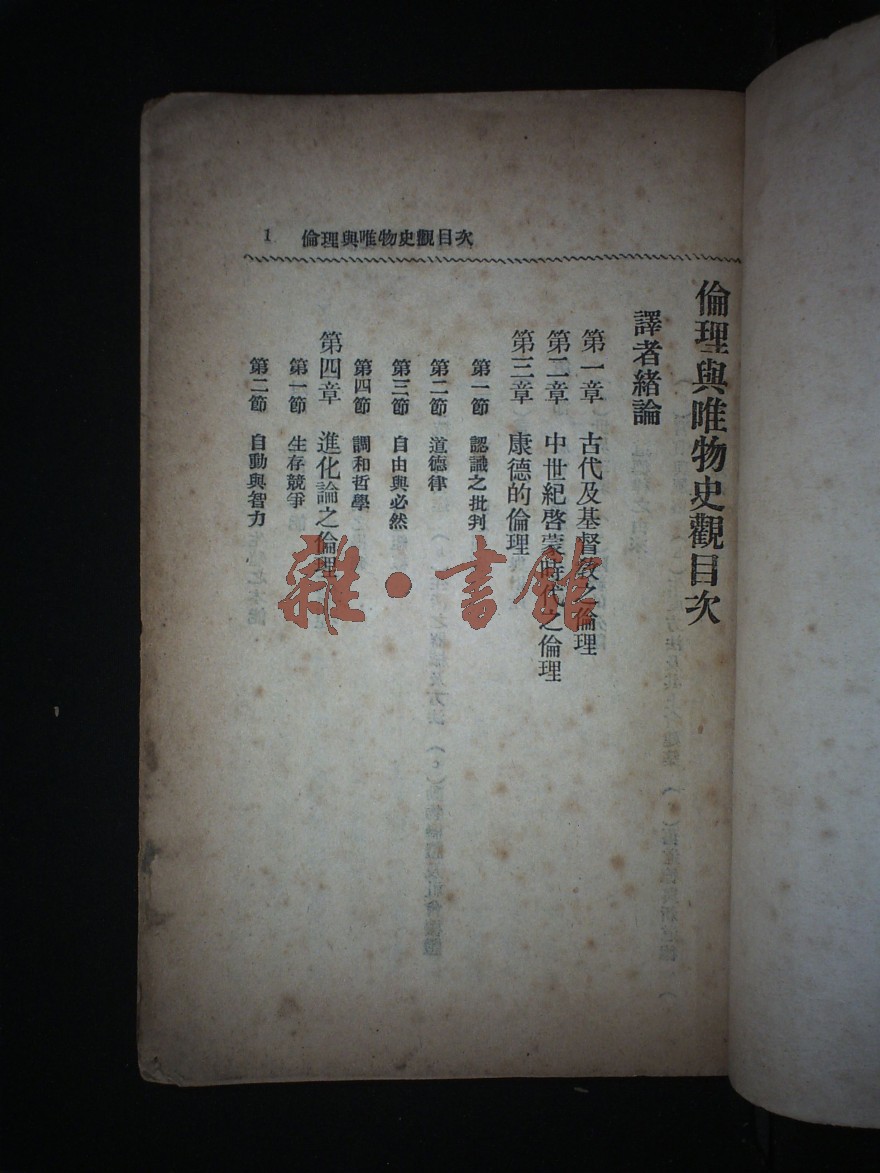 1 倫理與唯物史觀目次
倫理與唯物史觀目次
譯者緒論
第一章 古代及基督教之倫理
第二章 中世紀啓蒙時代之倫理
第三章 康德的倫理
第一節 認識之批判
第二節 道德律
第三節 自由與必然
第四節 調和哲學
第四章 進化論之倫理
第一節 生存競爭
第二節 自動與智力
雜·書館